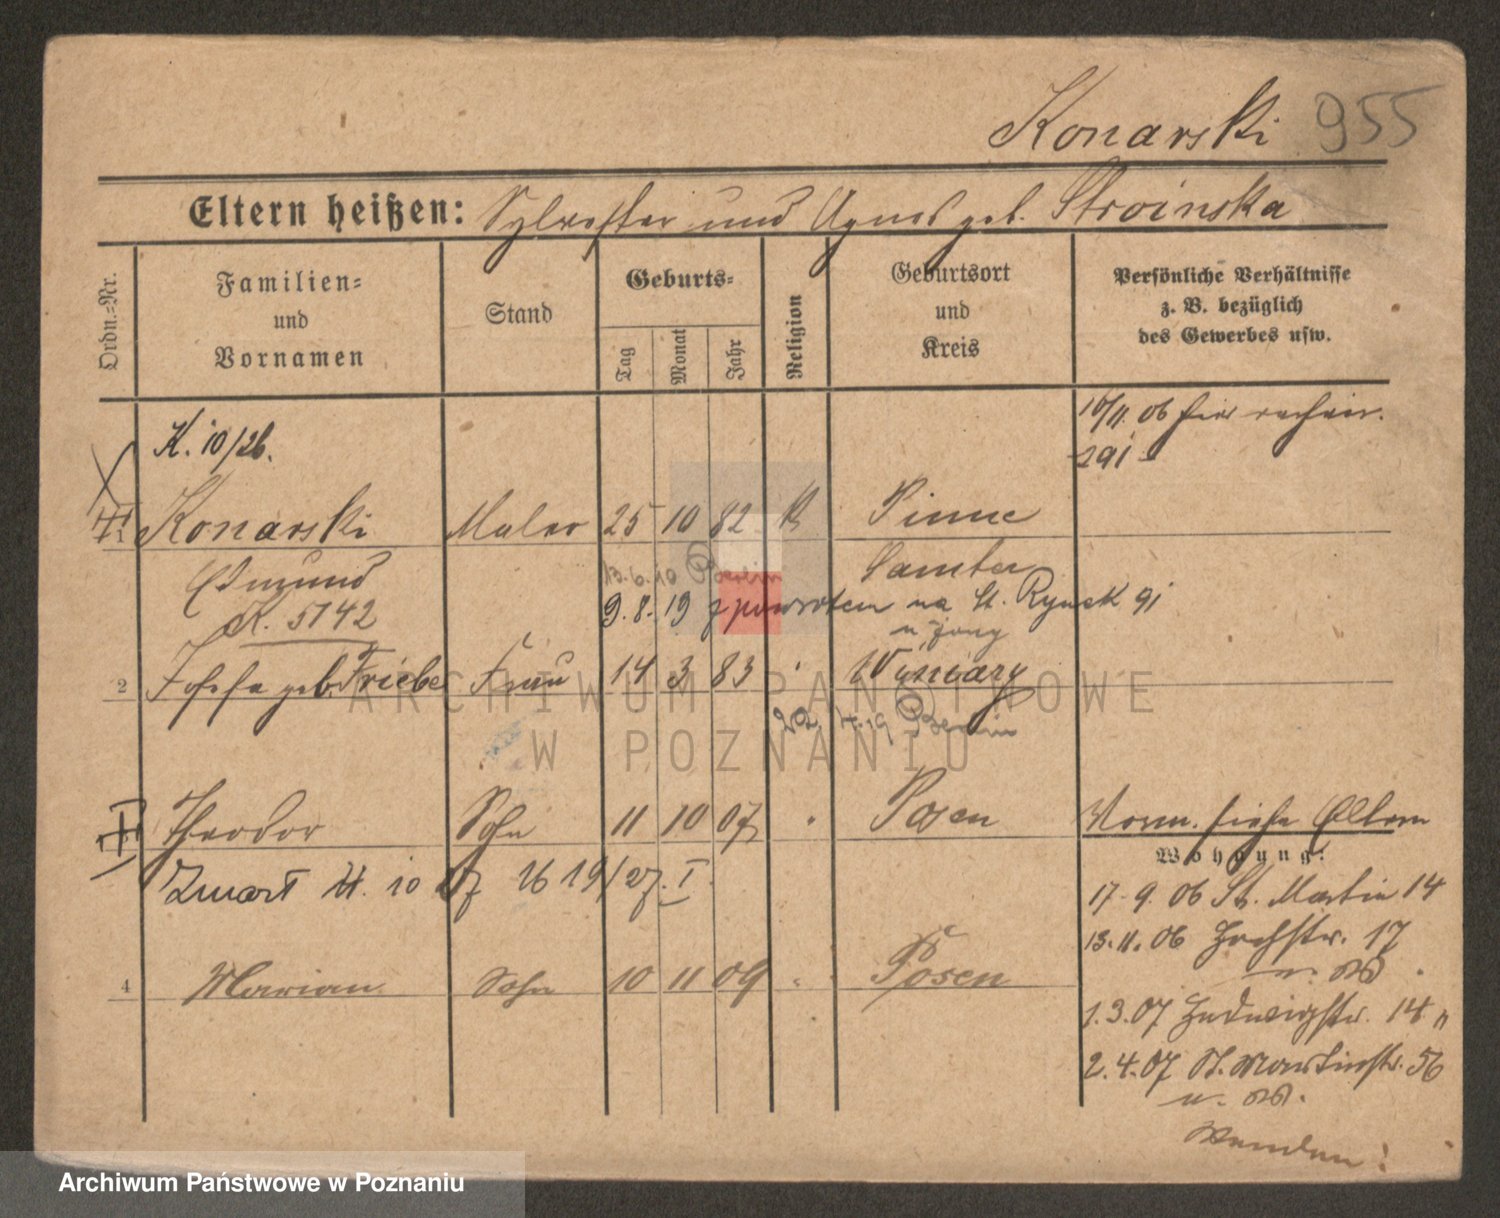 Konarski 955
Eltern heißen: Sylvester und Agnes geb. Stroinska
Ordn.-Nr.
Familien-
und
Vornamen
Stand
Geburts-
Tag
Monat
Jahr
Religion
Geburtsort
und
Kreis
Persönliche Verhältnisse
z. B. bezüglich
des Gewerbes usw.
10/11. 06 hier
291
K. 10/26.
Konarski Maler 25 10 82 K Pinne
Edmund Samter
13. 6. 10 Berlin
9. 8. 19 z powrotem na St. Rynek 91
K. 5142
u. Jeny
2 Josefa geb. Friebe Frau 14 3 83 Winiary
22. 4. 19 Berlin
Theodor Sohn 11 10 07 Posen
Norm. siehe Eltern
Wohnung:
Zmarł 11. 10 27 1619/27. I
17. 9. 06 St. Martin 14
13. 11. 06 Hochstr. 17
4 Marian Sohn 10 11 09 Posen
1. 3. 07 Hedwigstr. 14 "
2. 4. 07 St. Martinstr. 56
Wenden!
ARCHIWUM PAŃSTWOWE
W POZNANIU
Archiwum Państwowe w Poznaniu